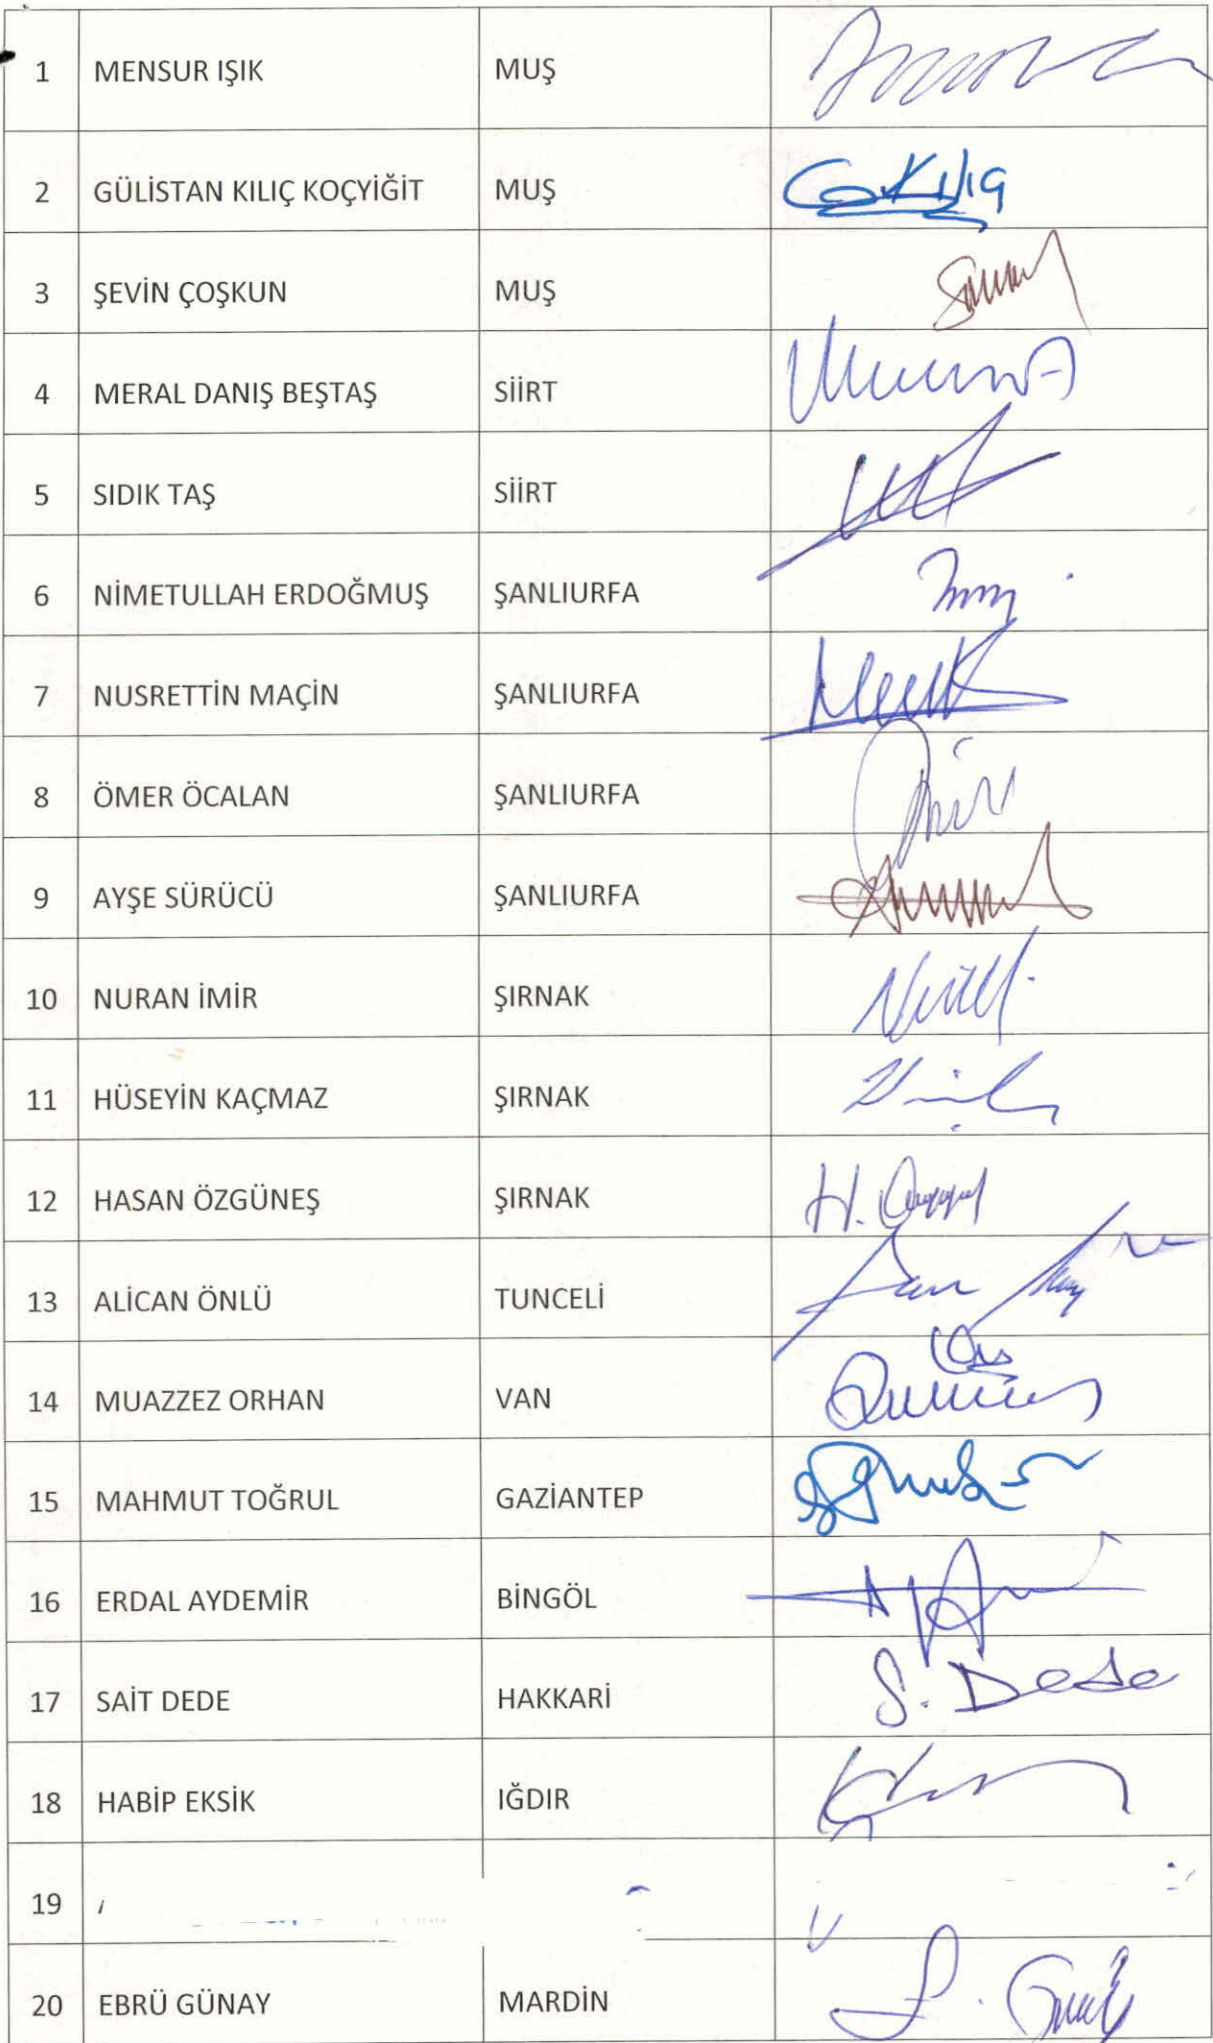 1 MENSUR IŞIK MUŞ
2 GÜLİSTAN KILIÇ KOÇYİĞİT MUŞ
3 ŞEVİN ÇOŞKUN MUŞ
4 MERAL DANIŞ BEŞTAŞ SİİRT
5 SIDIK TAŞ SİİRT
6 NİMETULLAH ERDOĞMUŞ ŞANLIURFA
7 NUSRETTİN MAÇİN ŞANLIURFA
8 ÖMER ÖCALAN ŞANLIURFA
9 AYŞE SÜRÜCÜ ŞANLIURFA
10 NURAN İMİR ŞIRNAK
11 HÜSEYİN KAÇMAZ ŞIRNAK
12 HASAN ÖZGÜNEŞ ŞIRNAK
13 ALİCAN ÖNLÜ TUNCELİ
14 MUAZZEZ ORHAN VAN
15 MAHMUT TOĞRUL GAZİANTEP
16 ERDAL AYDEMİR BİNGÖL
17 SAİT DEDE HAKKARİ S. Dede
18 HABİP EKSİK IĞDIR
19
20 EBRÜ GÜNAY MARDİN